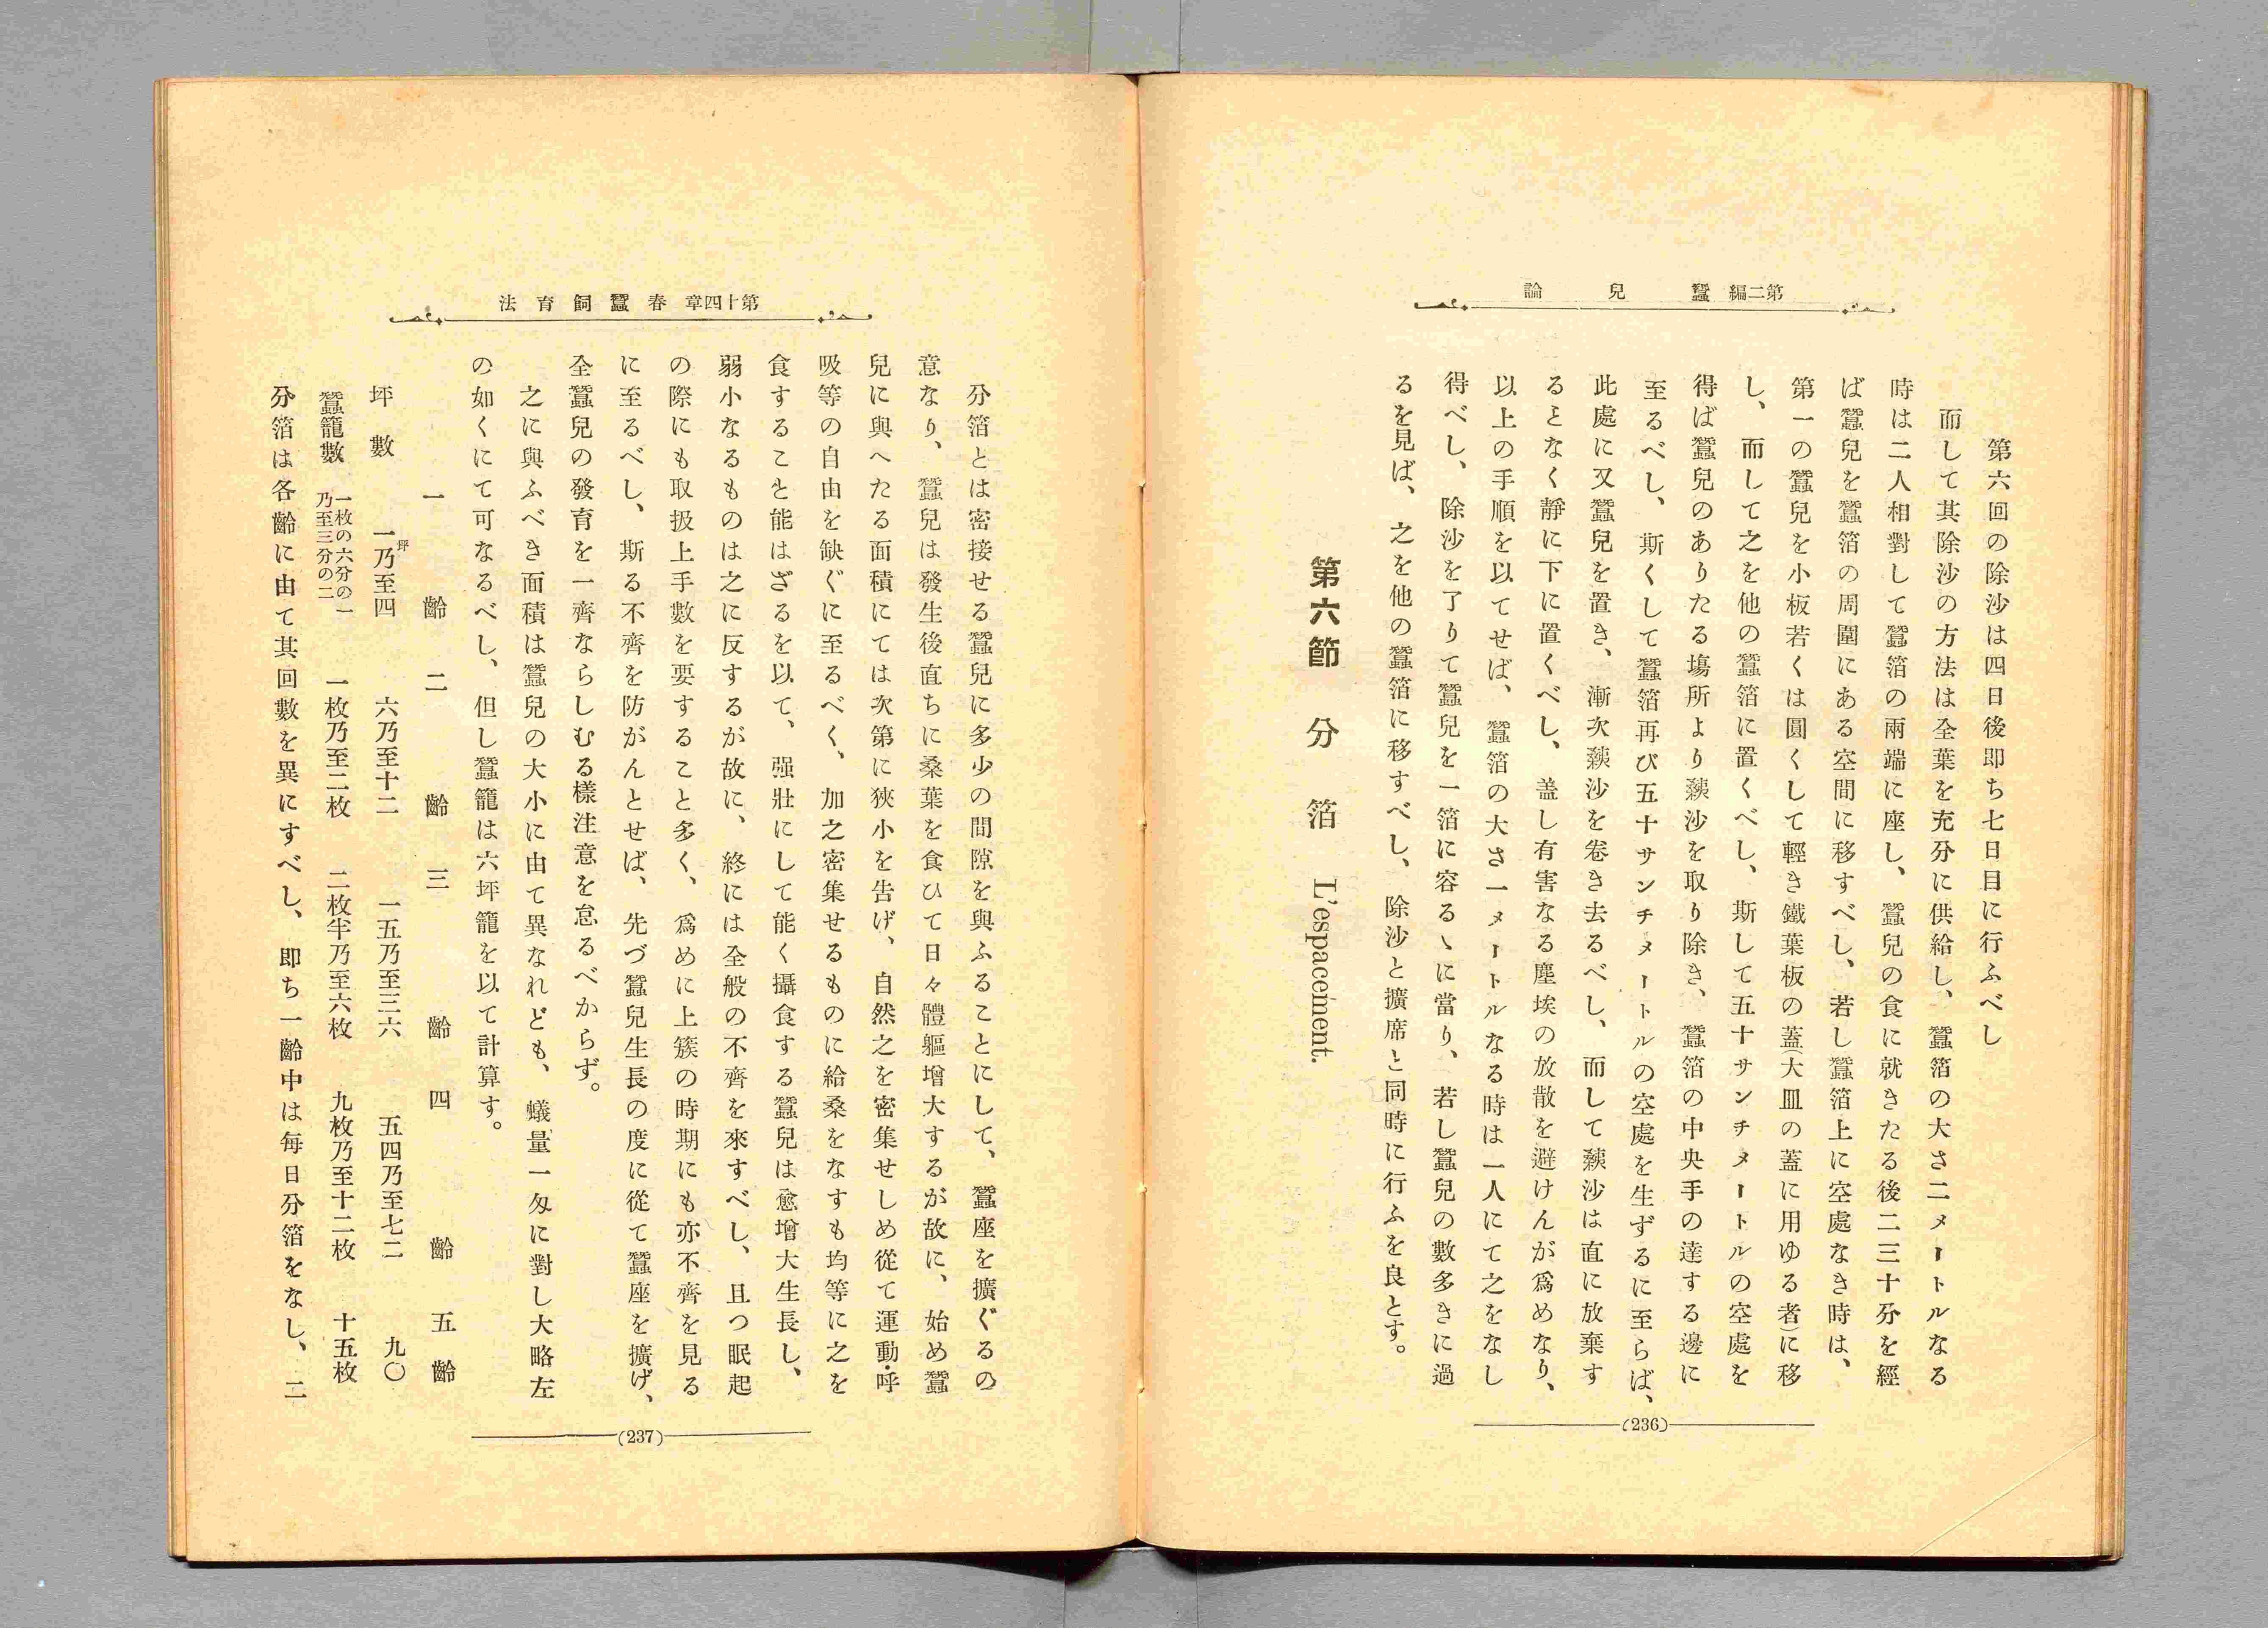 第二編　蠶　兒　論
第六回の除沙は四日後即ち七日目に行ふべし
而して其除沙の方法は全葉を充分に供給し、蠶箔の大さ二メートルなる
時は二人相對して蠶箔の兩端に座し、蠶兒の食に就きたる後二三十分を經
ば蠶兒を蠶箔の周圍にある空間に移すべし、若し蠶箔上に空處なき時は、
第一の蠶兒を小板若くは圓くして輕き鐵葉板の蓋(大皿の蓋に用ゆる者)に移
し、而して之を他の蠶箔に置くべし、斯して五十サンチメートルの空處を
得ば蠶兒のありたる塲所より蘱沙を取り除き、蠶箔の中央手の達する邊に
至るべし、斯くして蠶箔再び五十サンチメートルの空處を生ずるに至らば、
此處に又蠶兒を置き、漸次蘱沙を卷き去るべし、而して蘱沙は直に放棄す
るとなく靜に下に置くべし、盖し有害なる塵埃の放散を避けんが爲めなり、
以上の手順を以てせば、蠶箔の大さ一メートルなる時は一人にて之をなし
得べし、除沙を了りて蠶兒を一箔に容るゝに當り、若し蠶兒の數多きに過
るを見ば、之を他の蠶箔に移すべし、除沙と擴席と同時に行ふを良とす。
第六節　分　箔　L'espacement.
(236)
第十四章　春　蠶　飼　育　法
分箔とは密接せる蠶兒に多少の間隙を與ふることにして、蠶座を擴ぐるの
意なり、蠶兒は發生後直ちに桑葉を食ひて日々體軀增大するが故に、始め蠶
兒に與へたる面積にては次第に狹小を告げ、自然之を密集せしめ從て運動・呼
吸等の自由を缺ぐに至るべく、加之密集せるものに給桑をなすも均等に之を
食すること能はざるを以て、强壯にして能く攝食する蠶兒は愈增大生長し、
弱小なるものは之に反するが故に、終には全般の不齊を來すべし、且つ眠起
の際にも取扱上手數を要すること多く、爲めに上簇の時期にも亦不齊を見る
に至るべし、斯る不齊を防がんとせば、先づ蠶兒生長の度に從て蠶座を擴げ、
全蠶兒の發育を一齊ならしむる樣注意を怠るべからず。
之に與ふべき面積は蠶兒の大小に由て異なれども、蟻量一匁に對し大略左
の如くにて可なるべし、但し蠶籠は六坪籠を以て計算す。
一　齡　二　齡　三　齡　四　齡　五　齡
坪　數　一坪乃至四　六乃至十二　一五乃至三六　五四乃至七二　九〇
蠶籠數　一枚の六分の一乃至三分の二　一枚乃至二枚　二枚半乃至六枚　九枚乃至十二枚　十五枚
分箔は各齡に由て其回數を異にすべし、即ち一齡中は每日分箔をなし、二
(237)